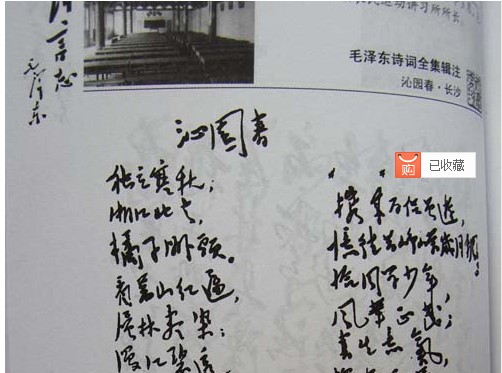 言志
毛泽东
运动讲习所所长。
毛泽东诗词全集辑注
沁园春·长沙
沁园春
独立寒秋;
湘江北去,
橘子洲头。
看萬山红遍,
层林尽染;
漫江碧透
携来百侣曾遊,
憶往昔峥嵘歲月稠。
恰同学少年,
风华正茂;
书生意氣,
购 已收藏